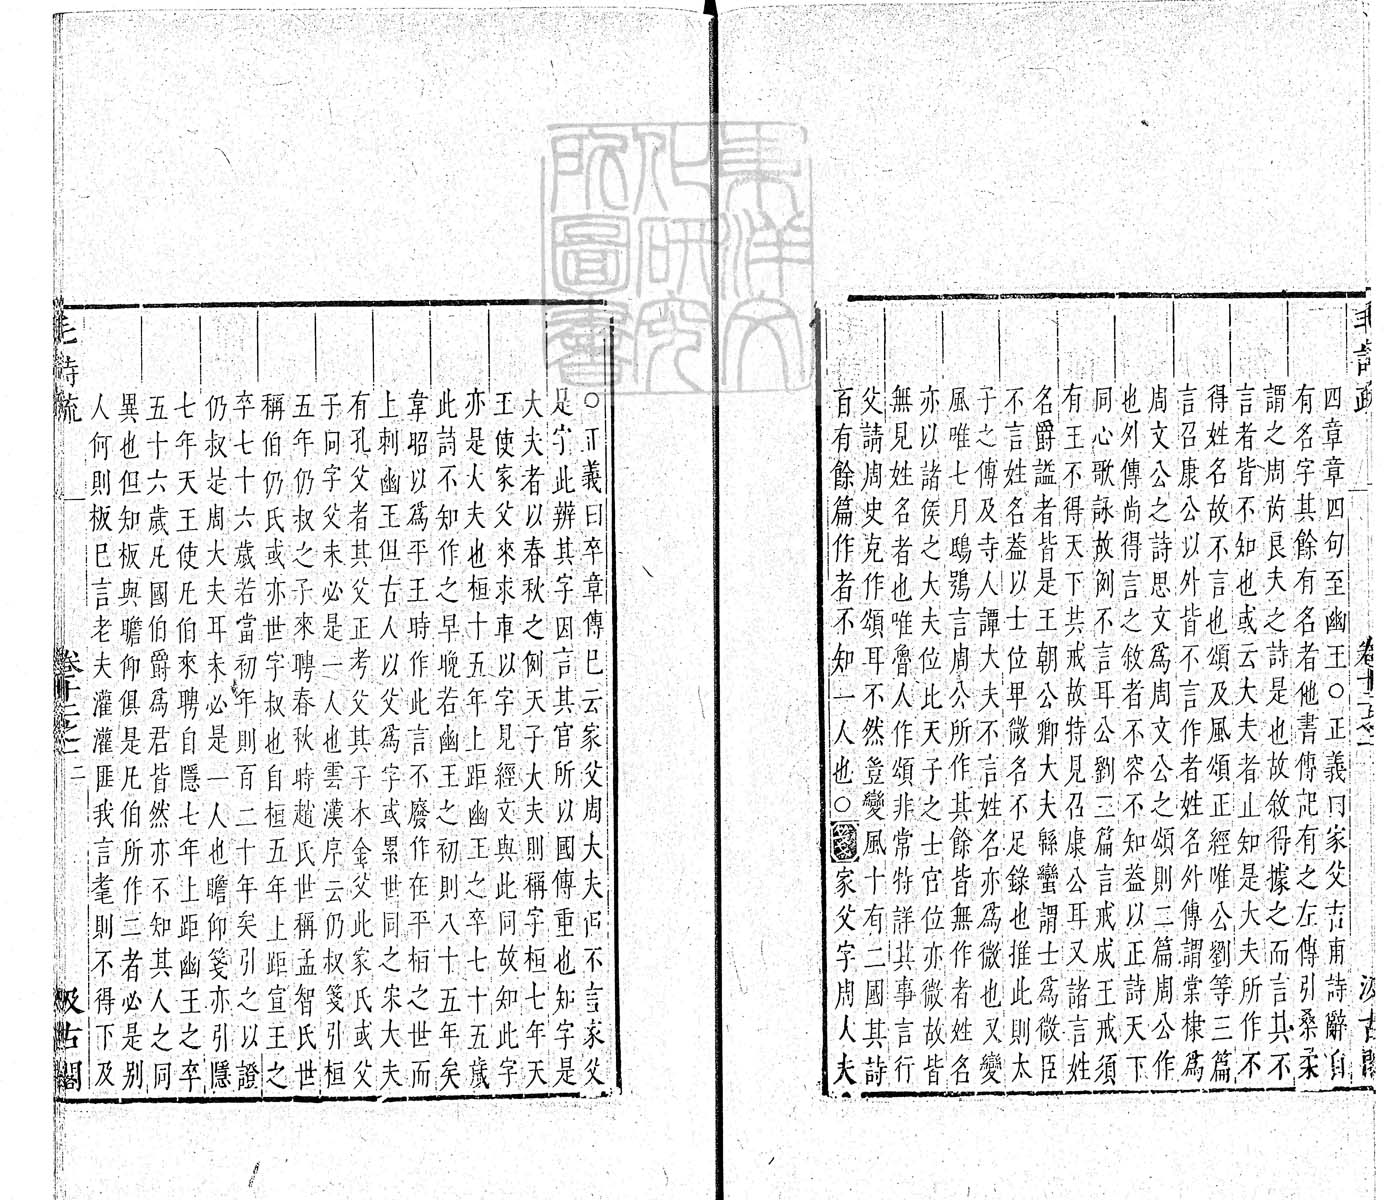 毛詩疏
卷十二之一
汲古閣
四章章四句至幽王○正義曰家父吉甫詩辭自
有名字其餘有名者他書傳記有之左傳引桑柔
謂之周芮良夫之詩是也故敘得據之而言其不
言者皆不知也或云大夫者止知是大夫所作不
得姓名故不言也頌及風頌正經唯公劉等三篇
言召康公以外皆不言作者姓名外傳謂棠棣為
周文公之詩思文爲周文公之頌則二篇周公作
也外傳尚得言之敘者不容不知葢以正詩天下
同心歌詠故例不言耳公劉三篇言戒成王戒須
有王不得天下共戒故特見召康公耳又諸言姓
名爵謚者皆是王朝公卿大夫緜蠻謂士爲微臣
不言姓名葢以士位卑微名不足錄也推此則太
子之傳及寺人譚大夫不言姓名亦爲微也又變
風唯七月鴟鴞言周公所作其餘皆無作者姓名
亦以諸侯之大夫位比天子之士官位亦微故皆
無見姓名者也唯魯人作頌非常特詳其事言行
父請周史克作頌耳不然豈變風十有二國其詩
百有餘篇作者不知一人也○箋家父字周人夫
○正義曰卒章傳已云家父周大夫但不言家父
是字此辨其字因言其官所以國傳重也知字是
大夫者以春秋之例天子大夫則稱字桓七年天
王使家父來求車以字見經文與此同故知此字
亦是大夫也桓十五年上距幽王之卒七十五歲
此詩不知作之早晚若幽王之初則八十五年矣
韋昭以爲平王時作此言不廢作在平桓之世而
上刺幽王但古人以父爲字或累世同之宋大夫
有孔父者其父正考父其子木金父此家氏或父
子同字父未必是一人也雲漢序云仍叔箋引桓
五年仍叔之子來聘春秋時趙氏世稱孟智氏世
稱伯仍氏或亦世字叔也自桓五年上距宣王之
卒七十六歲若當初年則百二十年矣引之以證
仍叔是周大夫耳未必是一人也瞻仰箋亦引隱
七年天王使凡伯來聘自隱七年上距幽王之卒
五十六歲凡國伯爵爲君皆然亦不知其人之同
異也但知板與瞻仰俱是凡伯所作二者必是別
人何則板已言老夫灌灌匪我言耄則不得下及
毛詩疏
卷十二之一
二
汲古閣
東洋文
化研究
所圖書